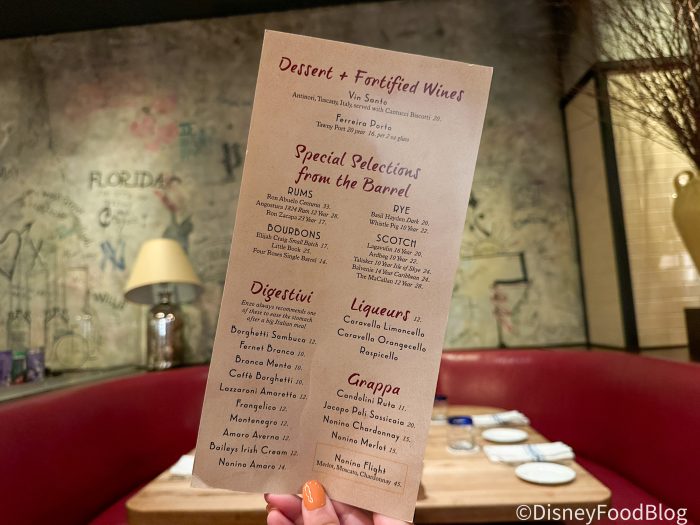 Dessert + Fortified Wines
Vin Santo
Antinori, Tuscany, Italy, served with Cantucci Biscotti 20.
Ferreira Porto
Tawny Port 20 year 16. per 2 oz glass
Special Selections
from the Barrel
RUMS
Ron Abuelo Centuria 33.
Angostura 1824 Rum 12 Year 28.
Ron Zacapa 23 Year 17.
BOURBONS
Elijah Craig Small Batch 17.
Little Book 25.
Four Roses Single Barrel 14.
RYE
Basil Hayden Dark 20.
Whistle Pig 10 Year 22.
SCOTCH
Lagavulin 16 Year 20.
Ardbeg 10 Year 22.
Talisker 10 Year Isle of Skye 24.
Balvenie 14 Year Caribbean 24.
The MaCallan 12 Year 28.
Digestivi
Enzo always recommends one
of these to ease the stomach
after a big Italian meal
Borghetti Sambuca 12.
Fernet Branca 10.
Branca Menta 10.
Caffè Borghetti 10.
Lazzaroni Amaretto 12.
Frangelico 12.
Montenegro 12.
Amaro Averna 12.
Baileys Irish Cream 12.
Nonino Amaro 14.
Liqueurs 12.
Caravella Limoncello
Caravella Orangecello
Raspicello
Grappa
Candolini Ruta 11.
Jacopo Poli Sassicaia 20.
Nonino Chardonnay 15.
Nonino Merlot 15.
Nonino Flight
Merlot, Moscato, Chardonnay 45.
FLORIDA
©DisneyFoodBlog